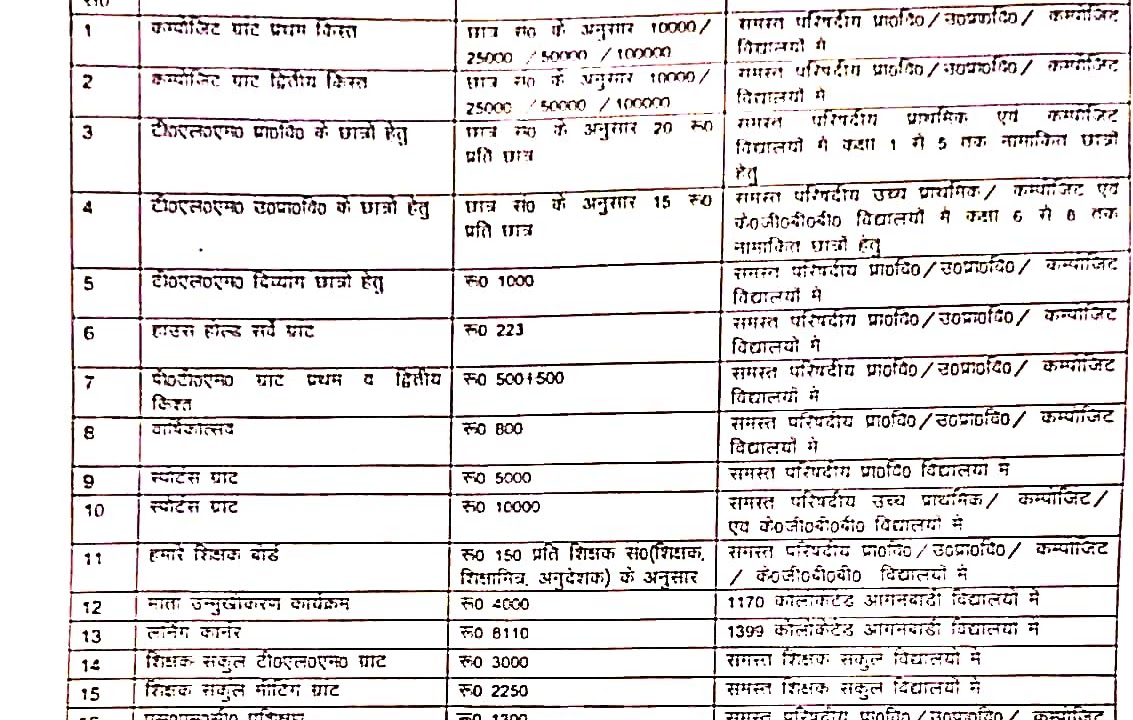 सं0
1 कम्पोजिट ग्रांट प्रथम किस्त छात्र सं0 के अनुसार 10000/ समस्त परिषदीय प्रा0वि0/उ0प्रा0वि0/ कम्पोजिट
25000 /50000 /100000 विद्यालयों में
2 कम्पोजिट ग्रांट द्वितीय किस्त छात्र सं0 के अनुसार 10000/ समस्त परिषदीय प्रा0वि0/उ0प्रा0वि0/ कम्पोजिट
25000 /50000 /100000 विद्यालयों में
3 टी0एल0एम0 प्रा0वि0 के छात्रों हेतु छात्र सं0 के अनुसार 20 रू0 समस्त परिषदीय प्राथमिक एवं कम्पोजिट
प्रति छात्र विद्यालयों में कक्षा 1 से 5 तक नामांकित छात्रों
हेतु
4 टी0एल0एम0 उ0प्रा0वि0 के छात्रों हेतु छात्र सं0 के अनुसार 15 रू0 समस्त परिषदीय उच्च प्राथमिक/ कम्पोजिट एवं
प्रति छात्र के0जी0बी0वी0 विद्यालयों में कक्षा 6 से 8 तक
नामांकित छात्रों हेतु
5 टी0एल0एम0 दिव्यांग छात्रों हेतु रू0 1000 समस्त परिषदीय प्रा0वि0/उ0प्रा0वि0/ कम्पोजिट
विद्यालयों में
6 हाउस होल्ड सर्वे ग्रांट रू0 223 समस्त परिषदीय प्रा0वि0/उ0प्रा0वि0/ कम्पोजिट
विद्यालयों में
7 पी0टी0एम0 ग्रांट प्रथम व द्वितीय रू0 500+500 समस्त परिषदीय प्रा0वि0/उ0प्रा0वि0/ कम्पोजिट
किस्त विद्यालयों में
8 वार्षिकोत्सव रू0 800 समस्त परिषदीय प्रा0वि0/उ0प्रा0वि0/ कम्पोजिट
विद्यालयों में
9 स्पोर्टस ग्रांट रू0 5000 समस्त परिषदीय प्रा0वि0 विद्यालयों में
10 स्पोर्टस ग्रांट रू0 10000 समस्त परिषदीय उच्च प्राथमिक/ कम्पोजिट/
एवं के0जी0बी0वी0 विद्यालयों में
11 हमारे शिक्षक बोर्ड रू0 150 प्रति शिक्षक सं0(शिक्षक, समस्त परिषदीय प्रा0वि0/उ0प्रा0वि0/ कम्पोजिट
शिक्षामित्र, अनुदेशक) के अनुसार / के0जी0बी0वी0 विद्यालयों में
12 माता उन्मुखीकरण कार्यक्रम रू0 4000 1170 कोलोकेटेड आंगनबाडी विद्यालयों में
13 लर्निंग कार्नर रू0 8110 1399 कोलोकेटेड आंगनबाडी विद्यालयों में
14 शिक्षक संकुल टी0एल0एम0 ग्रांट रू0 3000 समस्त शिक्षक संकुल विद्यालयों में
15 शिक्षक संकुल मीटिंग ग्रांट रू0 2250 समस्त शिक्षक संकुल विद्यालयों में
16 रू0 1300 समस्त परिषदीय कम्पोजिट